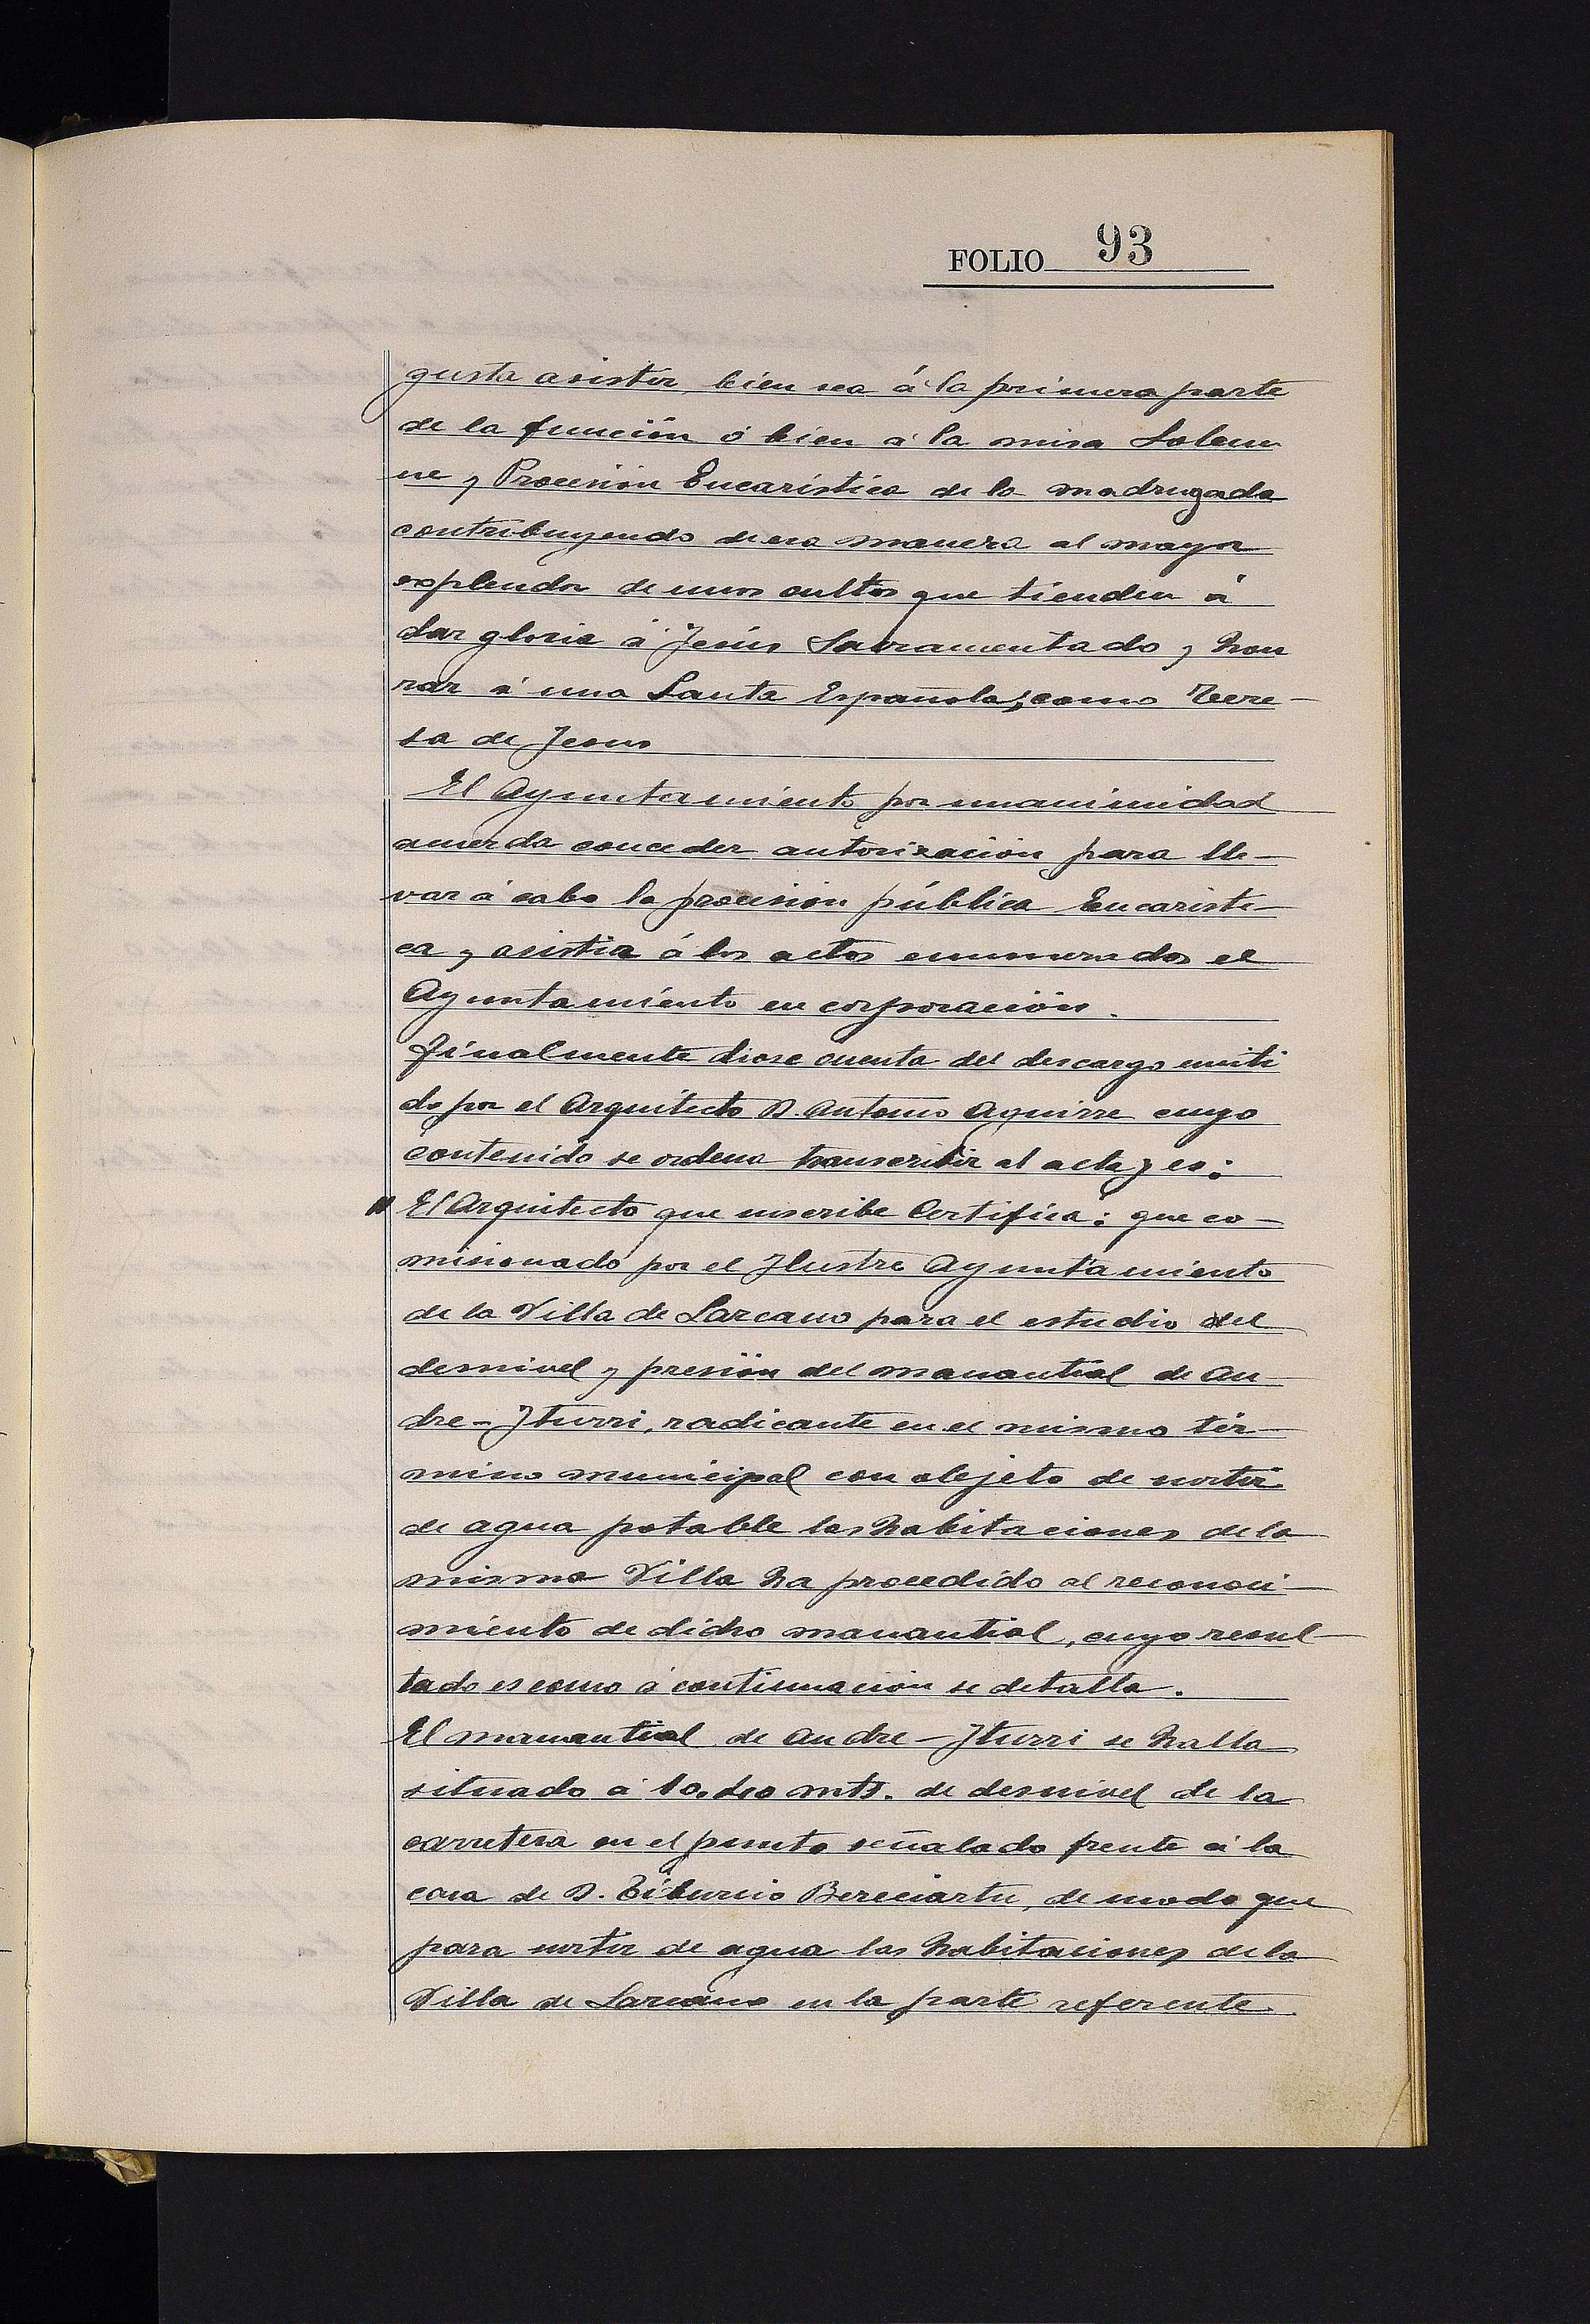 FOLIO 93
gusta asistir, bien sea á la primera parte
de la función ó bien á la misa Solem
ne y Procesión Eucarística de la madrugada
contribuyendo de esa manera al mayor
explendor de unos cultos que tienden á
dar gloria á Jesús Sacramentado y hon
rar á una Santa Española, como Tere-
sa de Jesus
El Ayuntamiento por unanimidad
acuerda conceder autorización para lle-
var á cabo la procesión pública Eucaristi-
ca y asistir á los actos enumerados el
Ayuntamiento en corporación.
Finalmente diose cuenta del descargo emiti
do por el Arquitecto D. Antonio Aguirre cuyo
contenido se ordena transcribir al acta y es:
" El Arquitecto que suscribe Certifica: que co-
misionado por el Ilustre Ayuntamiento
de la Villa de Lazcano para el estudio del
desnivel y presión del manantial de An
dre-Iturri, radicante en el mismo tér-
mino municipal con objeto de surtir
de agua potable las habitaciones de la
misma Villa ha procedido al reconoci-
miento de dicho manantial, cuyo resul-
tado es como á continuación se detalla.
El manantial de Andre-Iturri se halla
situado á mts. de desnivel de la
carretera en el punto señalado frente á la
casa de D. Tiburcio Bereciartu, de modo que
para surtir de agua las habitaciones de la
Villa de Lazcano en la parte referente